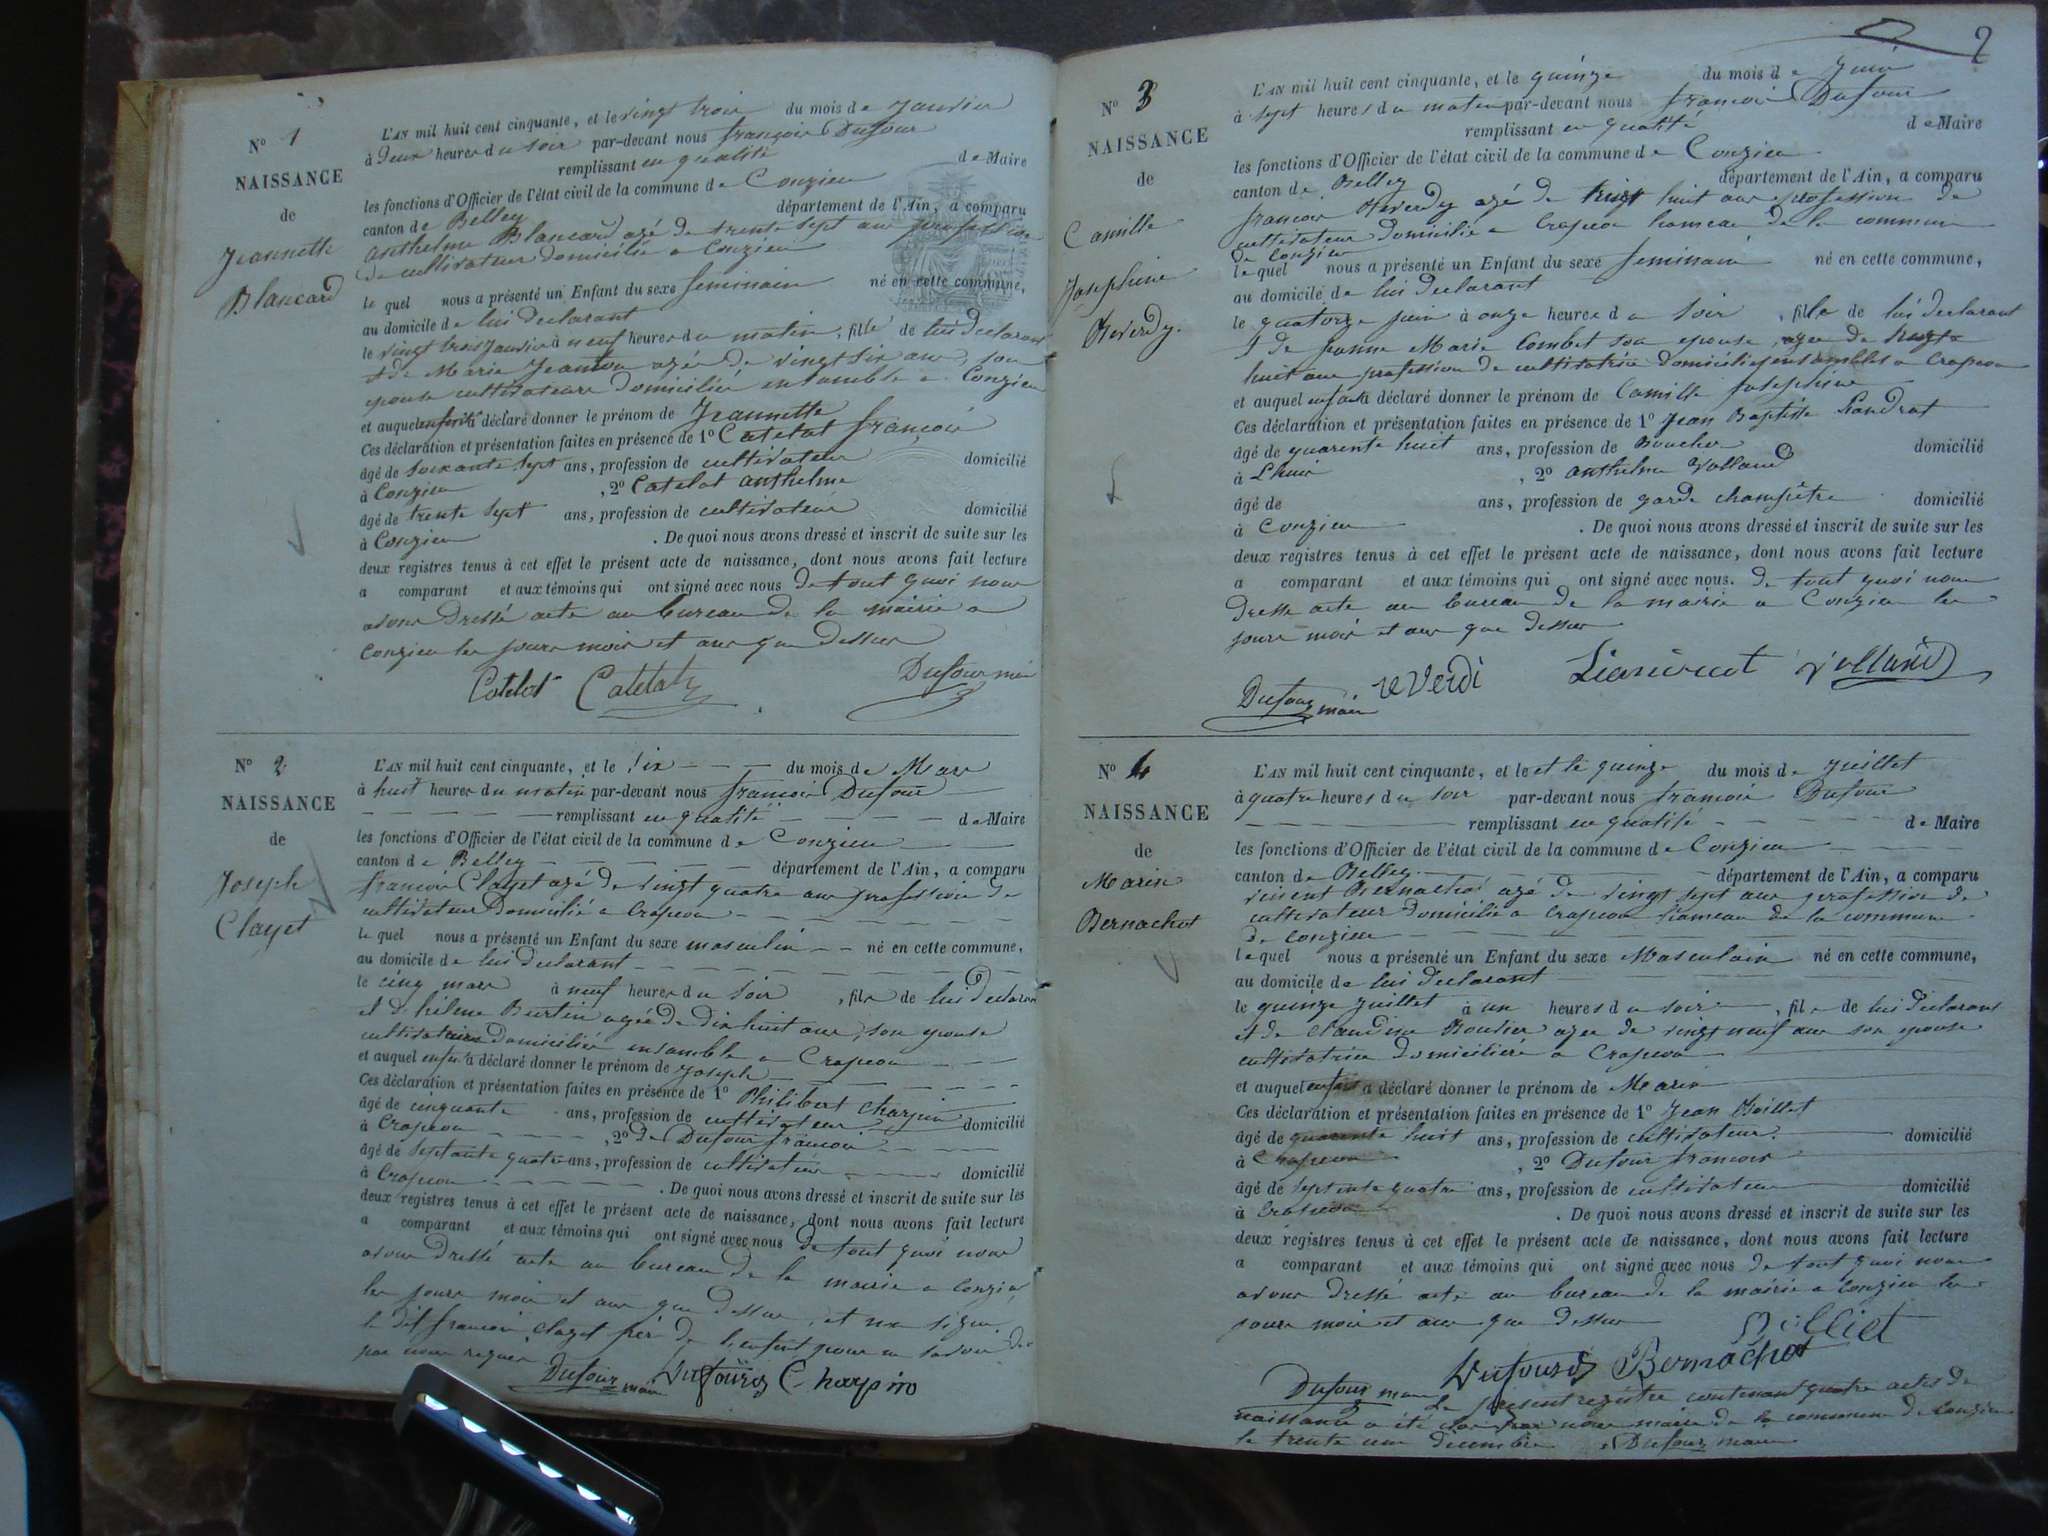 N° 1
NAISSANCE
de
Jeannette
Blancard
L'AN mil huit cent cinquante, et le vingt trois du mois de Janvier
à Deux heures du soir par-devant nous françois Dufour
remplissant en qualité de Maire
les fonctions d'Officier de l'état civil de la commune de Conzieu
canton de Belley département de l'Ain, a comparu
anthelme Blancard agé de trente sept ans profession
de cultivateur domicilié a Conzieu
le quel nous a présenté un Enfant du sexe feminain né en cette commune,
au domicile de lui declarant
le vingt trois Janvier à neuf heures du matin, fille de lui declarant
et de Marie Jeanton agée de vingt six ans, son
epouse cultivateurs domiciliés ensemble a Conzieu
et auquel enfant a déclaré donner le prénom de Jeannette
Ces déclaration et présentation faites en présence de 1° Catelat françois
âgé de soixante sept ans, profession de cultivateur domicilié
à Conzieu , 2° Catelat anthelme
âgé de trente sept ans, profession de cultivateur domicilié
à Conzieu . De quoi nous avons dressé et inscrit de suite sur les
deux registres tenus à cet effet le présent acte de naissance, dont nous avons fait lecture
a comparant et aux témoins qui ont signé avec nous de tout quoi nous
avons dressé acte au bureau de la mairie a
Conzieu les jours mois et ans que dessus
Catelat Catelat Dufour maire
N° 2
NAISSANCE
de
Joseph
Clayet
L'AN mil huit cent cinquante, et le six du mois de Mars
à huit heures du matin par-devant nous francois Dufour
remplissant en qualité de Maire
les fonctions d'Officier de l'état civil de la commune de Conzieu
canton de Belley département de l'Ain, a comparu
francois Clayet agé de vingt quatre ans profession de
cultivateur Domicilié a Crapeou
le quel nous a présenté un Enfant du sexe masculin né en cette commune,
au domicile de lui declarant
le cinq mars à neuf heures du soir , fils de lui declarant
et d'hélene Burtin agée de dix huit ans, son epouse
cultivateurs domiciliés ensamble a Crapeou
et auquel enfant a déclaré donner le prénom de Joseph
Ces déclaration et présentation faites en présence de 1° Philibert Charpin
âgé de cinquante ans, profession de cultivateur domicilié
à Crapeou , 2° de Dufour francois
âgé de septante quatre ans, profession de cultivateur domicilié
à Crapeou . De quoi nous avons dressé et inscrit de suite sur les
deux registres tenus à cet effet le présent acte de naissance, dont nous avons fait lecture
a comparant et aux témoins qui ont signé avec nous de tout quoi nous
avons dressé acte au bureau de la mairie a conzieu
les jours mois et ans que dessus, et non signé
le dit francois clayet père de l'enfant pour ne savoir de
par nous requis
Dufour maire Dufour Charpin
2
N° 3
NAISSANCE
de
Camille
Josephine
Reverdy
L'AN mil huit cent cinquante, et le quinze du mois de Juin
à sept heures du matin par-devant nous francois Dufour
remplissant en qualité de Maire
les fonctions d'Officier de l'état civil de la commune de Conzieu
canton de Belley département de l'Ain, a comparu
francois Reverdy agé de vingt huit ans profession de
cultivateur domicilié a Crapeou hameau de la commune
de Conzieu
lequel nous a présenté un Enfant du sexe feminain né en cette commune,
au domicile de lui declarant
le quatorze juin à onze heures du soir , fille de lui declarant
et de Jeanne Marie Combet son epouse, agée de vingt
huit ans profession de cultivatrice domiciliés ensembles a Crapeou
et auquel enfant a déclaré donner le prénom de Camille Josephine
Ces déclaration et présentation faites en présence de 1° Jean Baptiste
âgé de quarente huit ans, profession de Boucher domicilié
à Lhuis , 2° anthelme Volland
âgé de ans, profession de garde champêtre domicilié
à Conzieu . De quoi nous avons dressé et inscrit de suite sur les
deux registres tenus à cet effet le présent acte de naissance, dont nous avons fait lecture
a comparant et aux témoins qui ont signé avec nous. de tout quoi nous
dresse acte au bureau de la mairie a Conzieu les
jours mois et ans que dessus
Dufour maire reverdi Volland
N° 4
NAISSANCE
de
Marin
Bernachot
L'AN mil huit cent cinquante, et le et le quinze du mois de Juillet
à quatre heures du soir par-devant nous francois Dufour
remplissant en qualité de Maire
les fonctions d'Officier de l'état civil de la commune de Conzieu
canton de Belley département de l'Ain, a comparu
vincent Bernachot agé de vingt sept ans profession de
cultivateur domicilié a Crapeou hameau de la commune
de conzieu
lequel nous a présenté un Enfant du sexe Masculain né en cette commune,
au domicile de lui declarant
le quinze juillet à un heures du soir , fils de lui declarant
et de Claudine Bouvier agee de vingt neuf ans son epouse
cultivatrice domiciliere a Crapeou
et auquel enfant a déclaré donner le prénom de Marin
Ces déclaration et présentation faites en présence de 1° Jean
âgé de quarente huit ans, profession de cultivateur domicilié
à Crapeou , 2° Dufour francois
âgé de septente quatre ans, profession de cultivateur domicilié
à Crapeou . De quoi nous avons dressé et inscrit de suite sur les
deux registres tenus à cet effet le présent acte de naissance, dont nous avons fait lecture
a comparant et aux témoins qui ont signé avec nous de tout quoi nous
avons dressé acte au bureau de la mairie a conzieu les
jours mois et ans que dessus
Dufour Bernachot
Dufour maire Le présent registre contenant quatre actes de
naissance a été clos par nous maire de la commune de conzieu
le trente un decembre Dufour maire